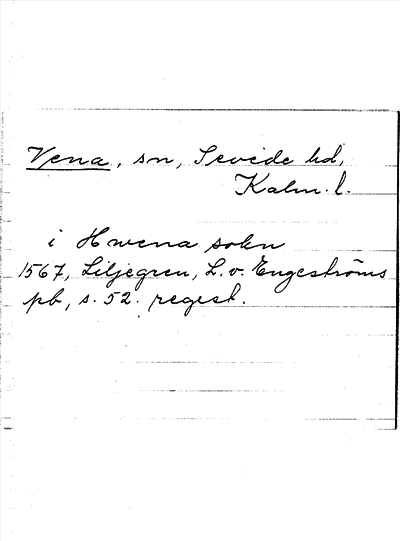 Vena, sn, Sevede hd,
Kalm. l.
i Hwena sokn
1567, Liljegren, L. v. Engeströms
pb, s. 52. regest.